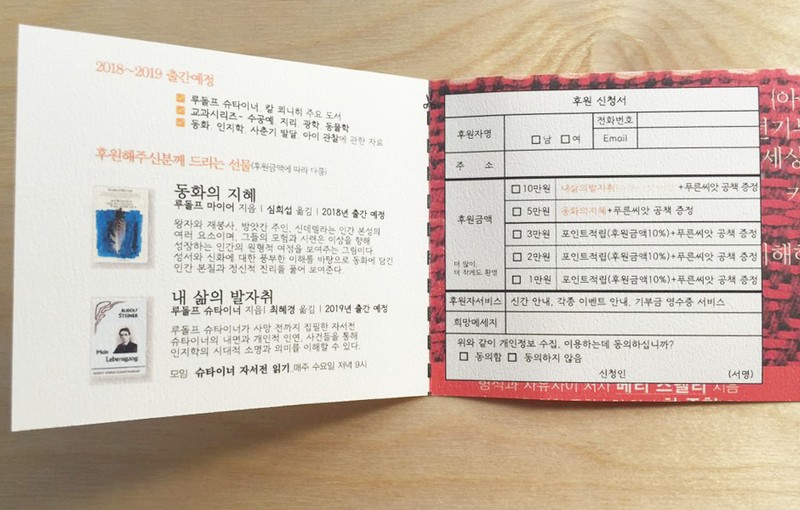 2018~2019 출간예정
루돌프 슈타이너. 칼 쾨니히 주요 도서
교과시리즈- 수공예 지리 광학 동물학
동화. 인지학. 사춘기 발달. 아이 관찰에 관한 자료
후원해주신분께 드리는 선물(후원금액에 따라 다름)
동화의 지혜
루돌프 마이어 지음 | 심희섭 옮김 | 2018년 출간 예정
왕자와 재봉사, 방앗간 주인, 신데렐라는 인간 본성의
여러 요소이며, 그들의 모험과 시련은 이상을 향해
성장하는 인간의 원형적 여정을 보여주는 그림이다.
성서와 신화에 대한 풍부한 이해를 바탕으로 동화에 담긴
인간 본질과 정신적 진리를 풀어 보여준다.
내 삶의 발자취
루돌프 슈타이너 지음 | 최혜경 옮김 | 2019년 출간 예정
루돌프 슈타이너가 사망 전까지 집필한 자서전
슈타이너의 내면과 개인적 인연, 사건들을 통해
인지학의 시대적 소명과 의미를 이해할 수 있다.
모임 슈타이너 자서전 읽기_매주 수요일 저녁 9시
RUDOLF
STEINER
Mein
Lebensgang
후원 신청서
후원자명 □ 남 □ 여 전화번호
Email
주 소
후원금액
더 많이,
더 작게도 환영
□ 10만원 내삶의발자취 +푸른씨앗 공책 증정
□ 5만원 동화의지혜+푸른씨앗 공책 증정
□ 3만원 포인트적립(후원금액10%)+푸른씨앗 공책 증정
□ 2만원 포인트적립(후원금액10%)+푸른씨앗 공책 증정
□ 1만원 포인트적립(후원금액10%)+푸른씨앗 공책 증정
후원자서비스 신간 안내, 각종 이벤트 안내, 기부금 영수증 서비스
희망메세지
위와 같이 개인정보 수집, 이용하는데 동의하십니까?
□ 동의함 □ 동의하지 않음
신청인 (서명)
세상